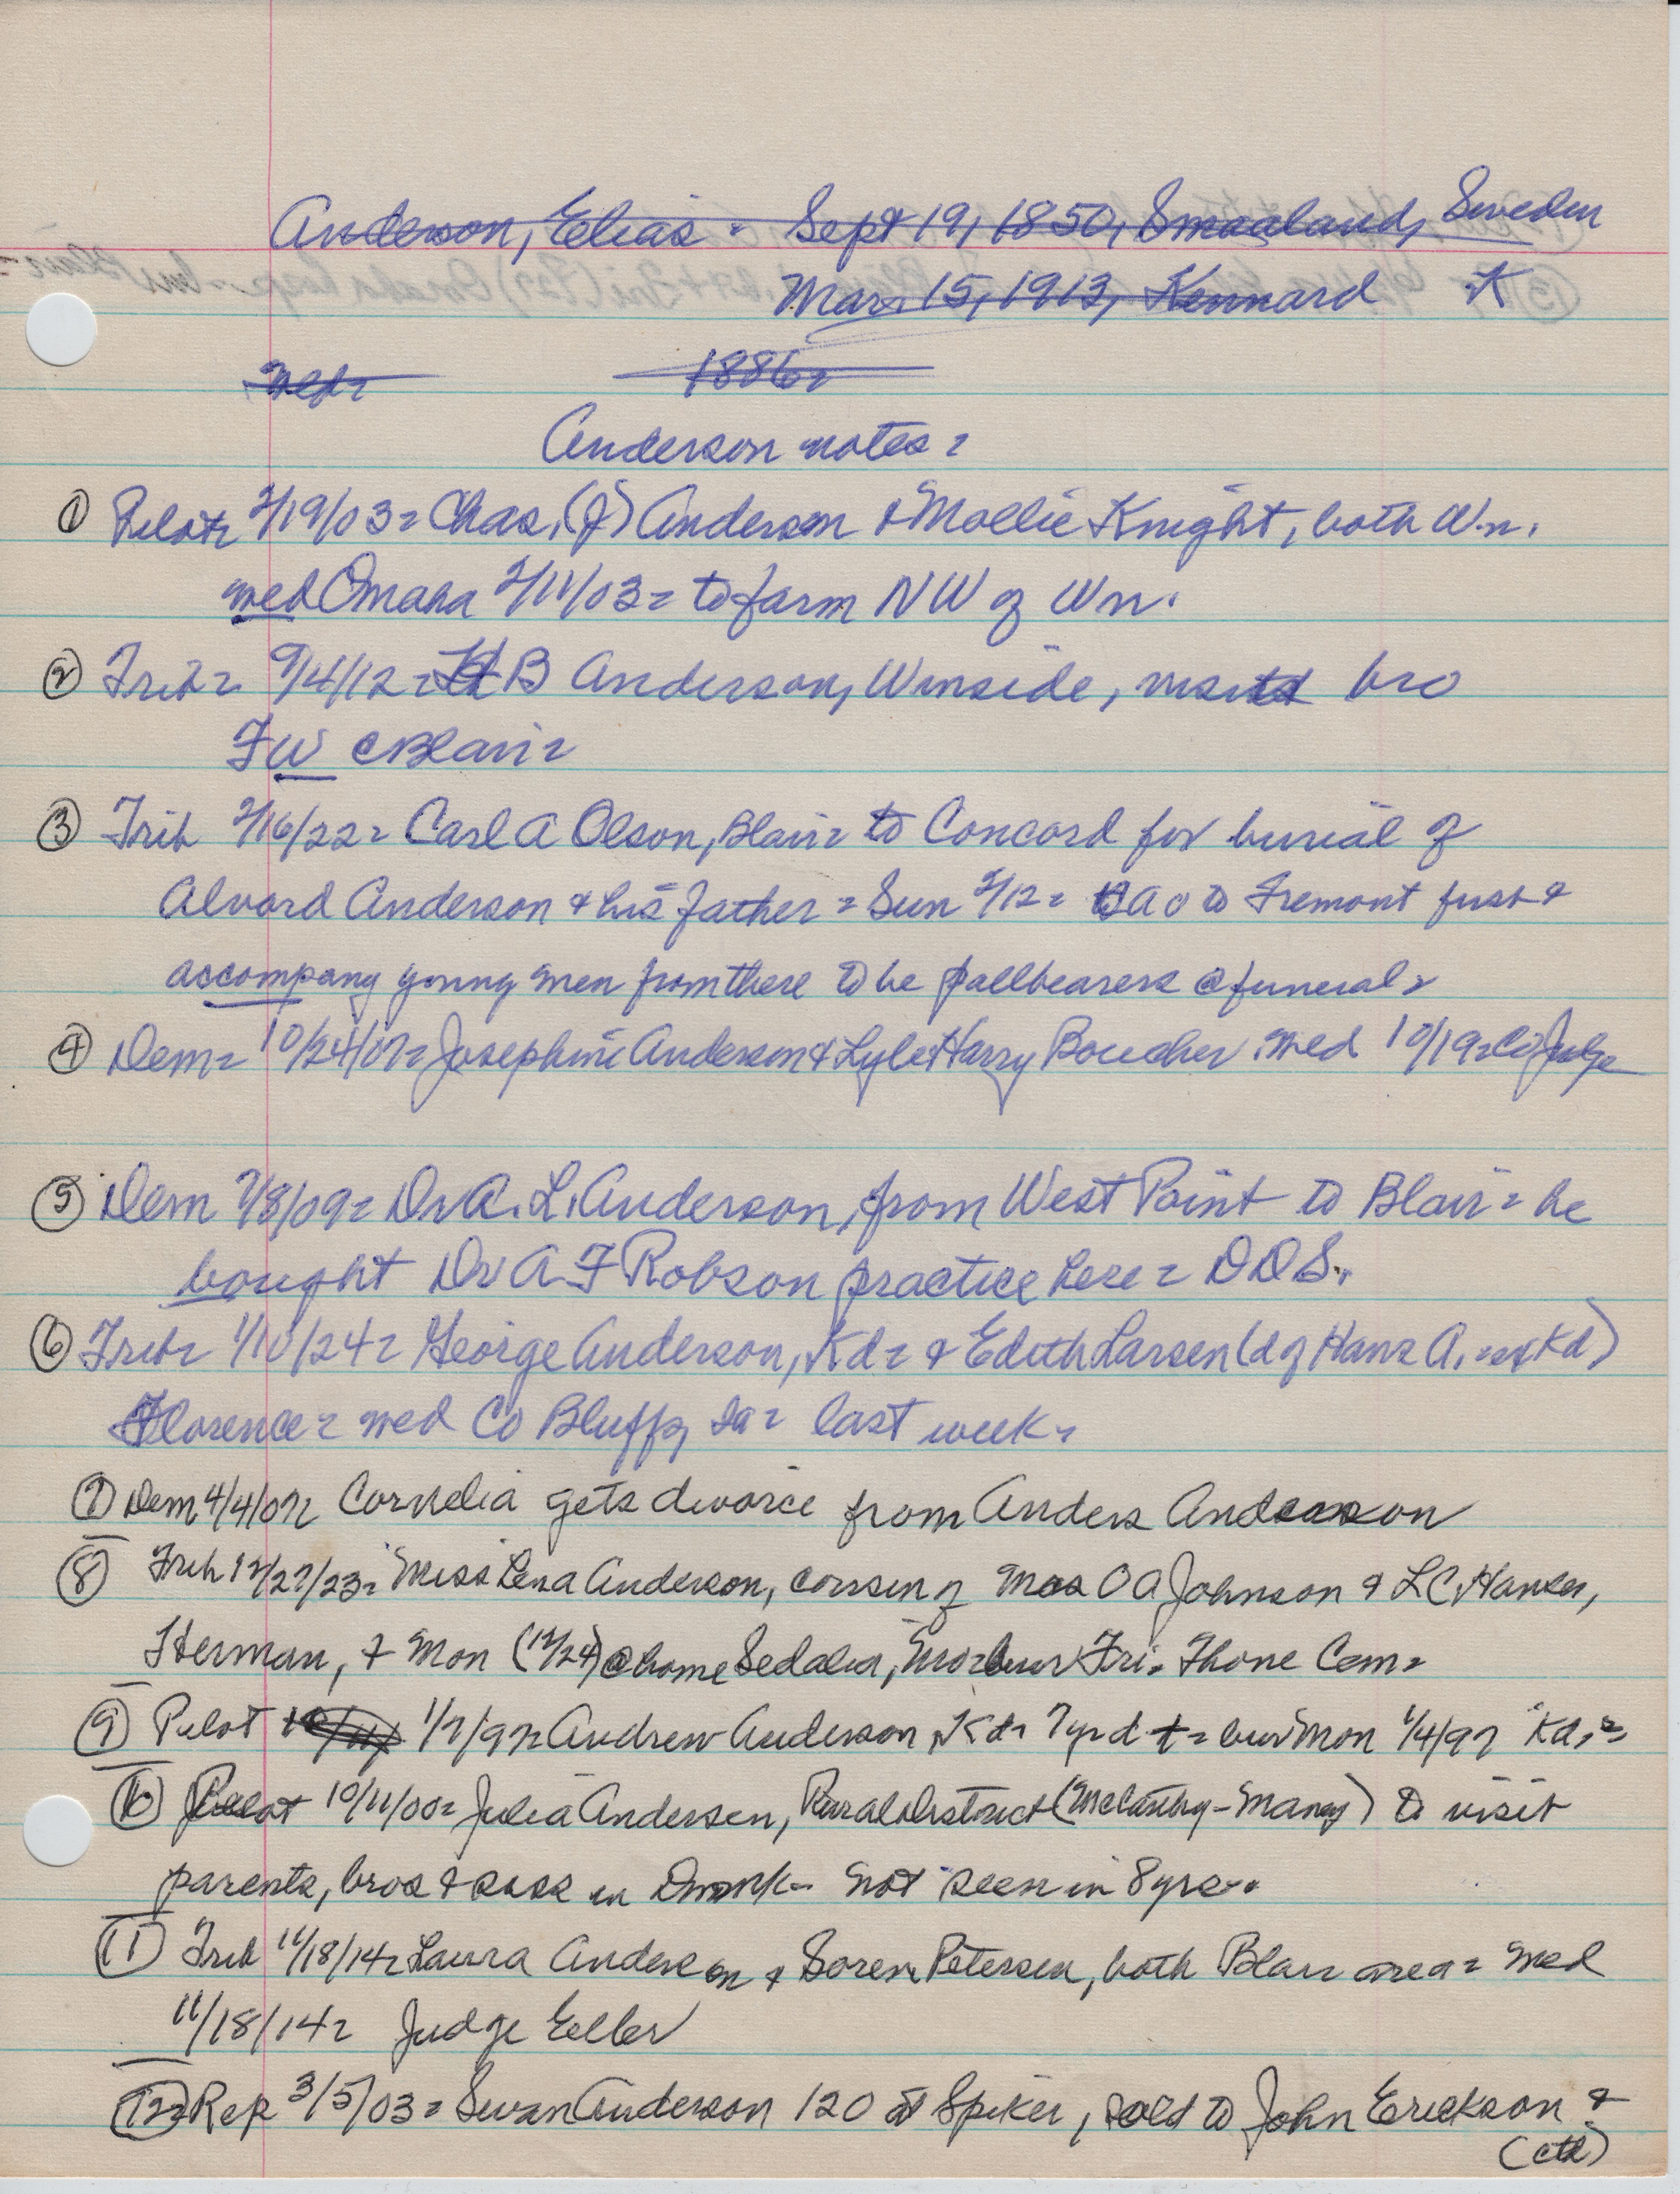 Anderson, Elias - Sept 19, 1850, Smaaland, Sweden
Mar. 15, 1913, Kennard
1886=
Anderson notes =
① Pilot= 2/19/03= Chas. (J) Anderson & Mollie Knight, both Wn.
med Omaha 2/11/03= to farm NW of Wn.
② Trib= 9/4/12= B Anderson, Winside, visits bro
FW @ Blair=
③ Trib 2/16/22= Carl A Olson, Blair= to Concord for burial of
Alvord Anderson & his father = Sun 2/12= to Fremont first &
accompany young men from there to be pallbearers @ funeral=
④ Dem= 10/24/07= Josephine Anderson & Lyle Harry Boucher med 10/19= Co Judge
⑤ Dem 7/8/09= Dr A. L. Anderson, from West Point to Blair= he
bought Dr A F Robson practice here = DDS.
⑥ Trib= 1/10/24= George Anderson, Kd= & Edith Larsen (d of Hans A. Kd)
Florence= med Co Bluffs, Ia= last week=
⑦ Dem 4/4/07= Cornelia gets divorce from Anders Anderson
⑧ Trib 12/27/23= Miss Lena Anderson, cousin of Mrs O A Johnson & L C Hansen,
Herman, + Mon (12/24) @ home Sedalia, Mo= bur Fri. Thone Cem=
⑨ Pilot 1/7/97= Andrew Anderson, Kd= 7 yr d +=bur Mon 1/4/97 Kd.=
⑩ Pilot 10/11/00= Julia Andersen, Rural District (McCarthy-Maney) to visit
parents, bros & siss in Dnmrk- not seen in 8 yrs-.
⑪ Trib 11/18/14= Laura Anderson & Soren Petersen, both Blair area= med
11/18/14= Judge Eller
⑫ Rep 3/5/03= Swan Anderson 120 at Spiker, sold to John Erickson &